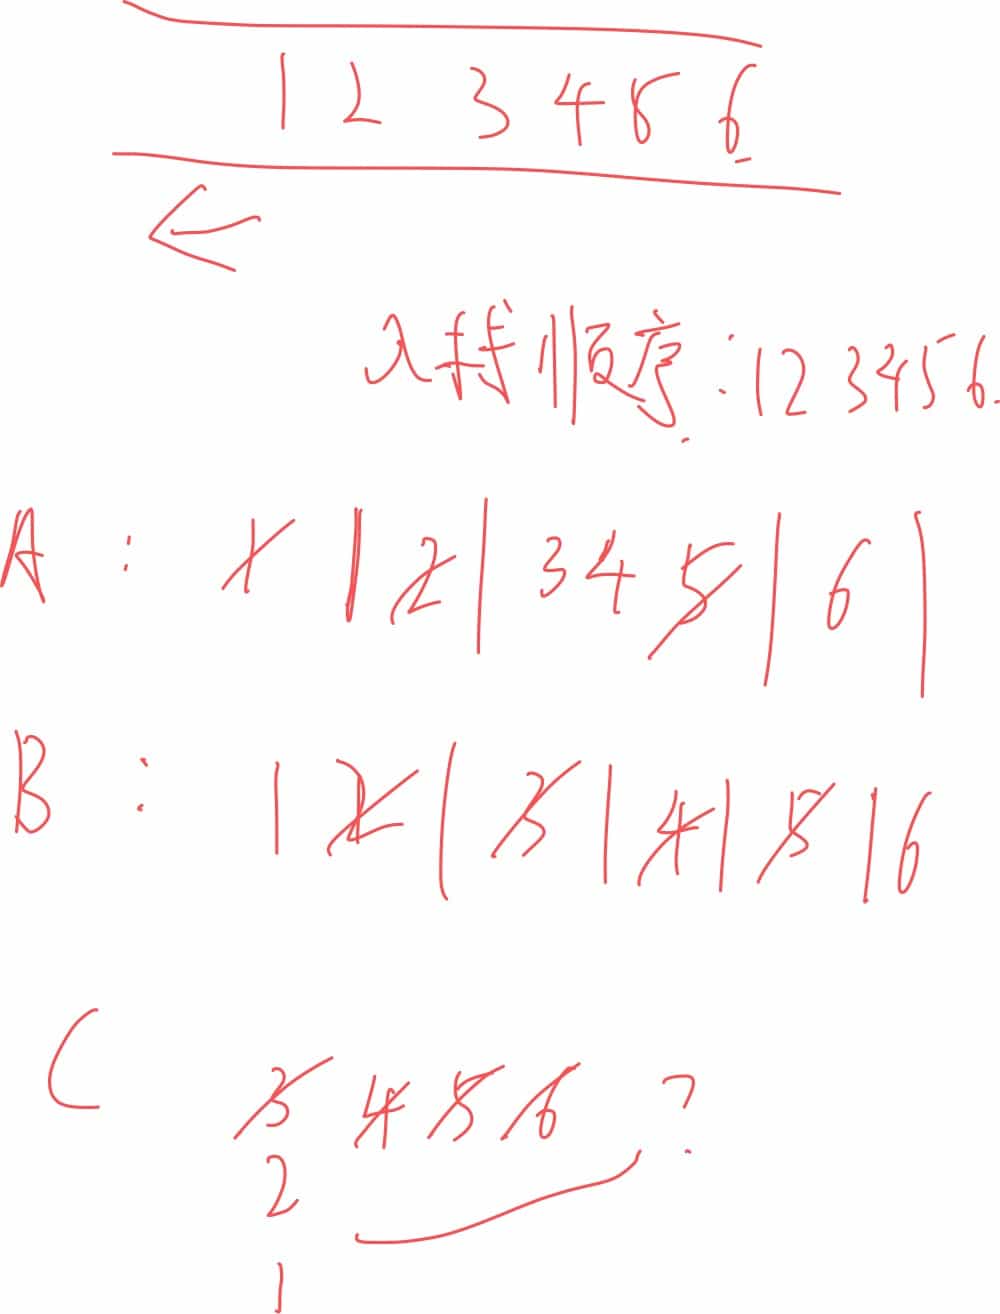 1 2 3 4 5 6
入栈顺序:1 2 3 4 5 6.
A : 1 | 2 | 3 4 5 | 6 |
B : 1 2 | 3 | 4 | 5 | 6
C 3 4 5 6 ?
2
1